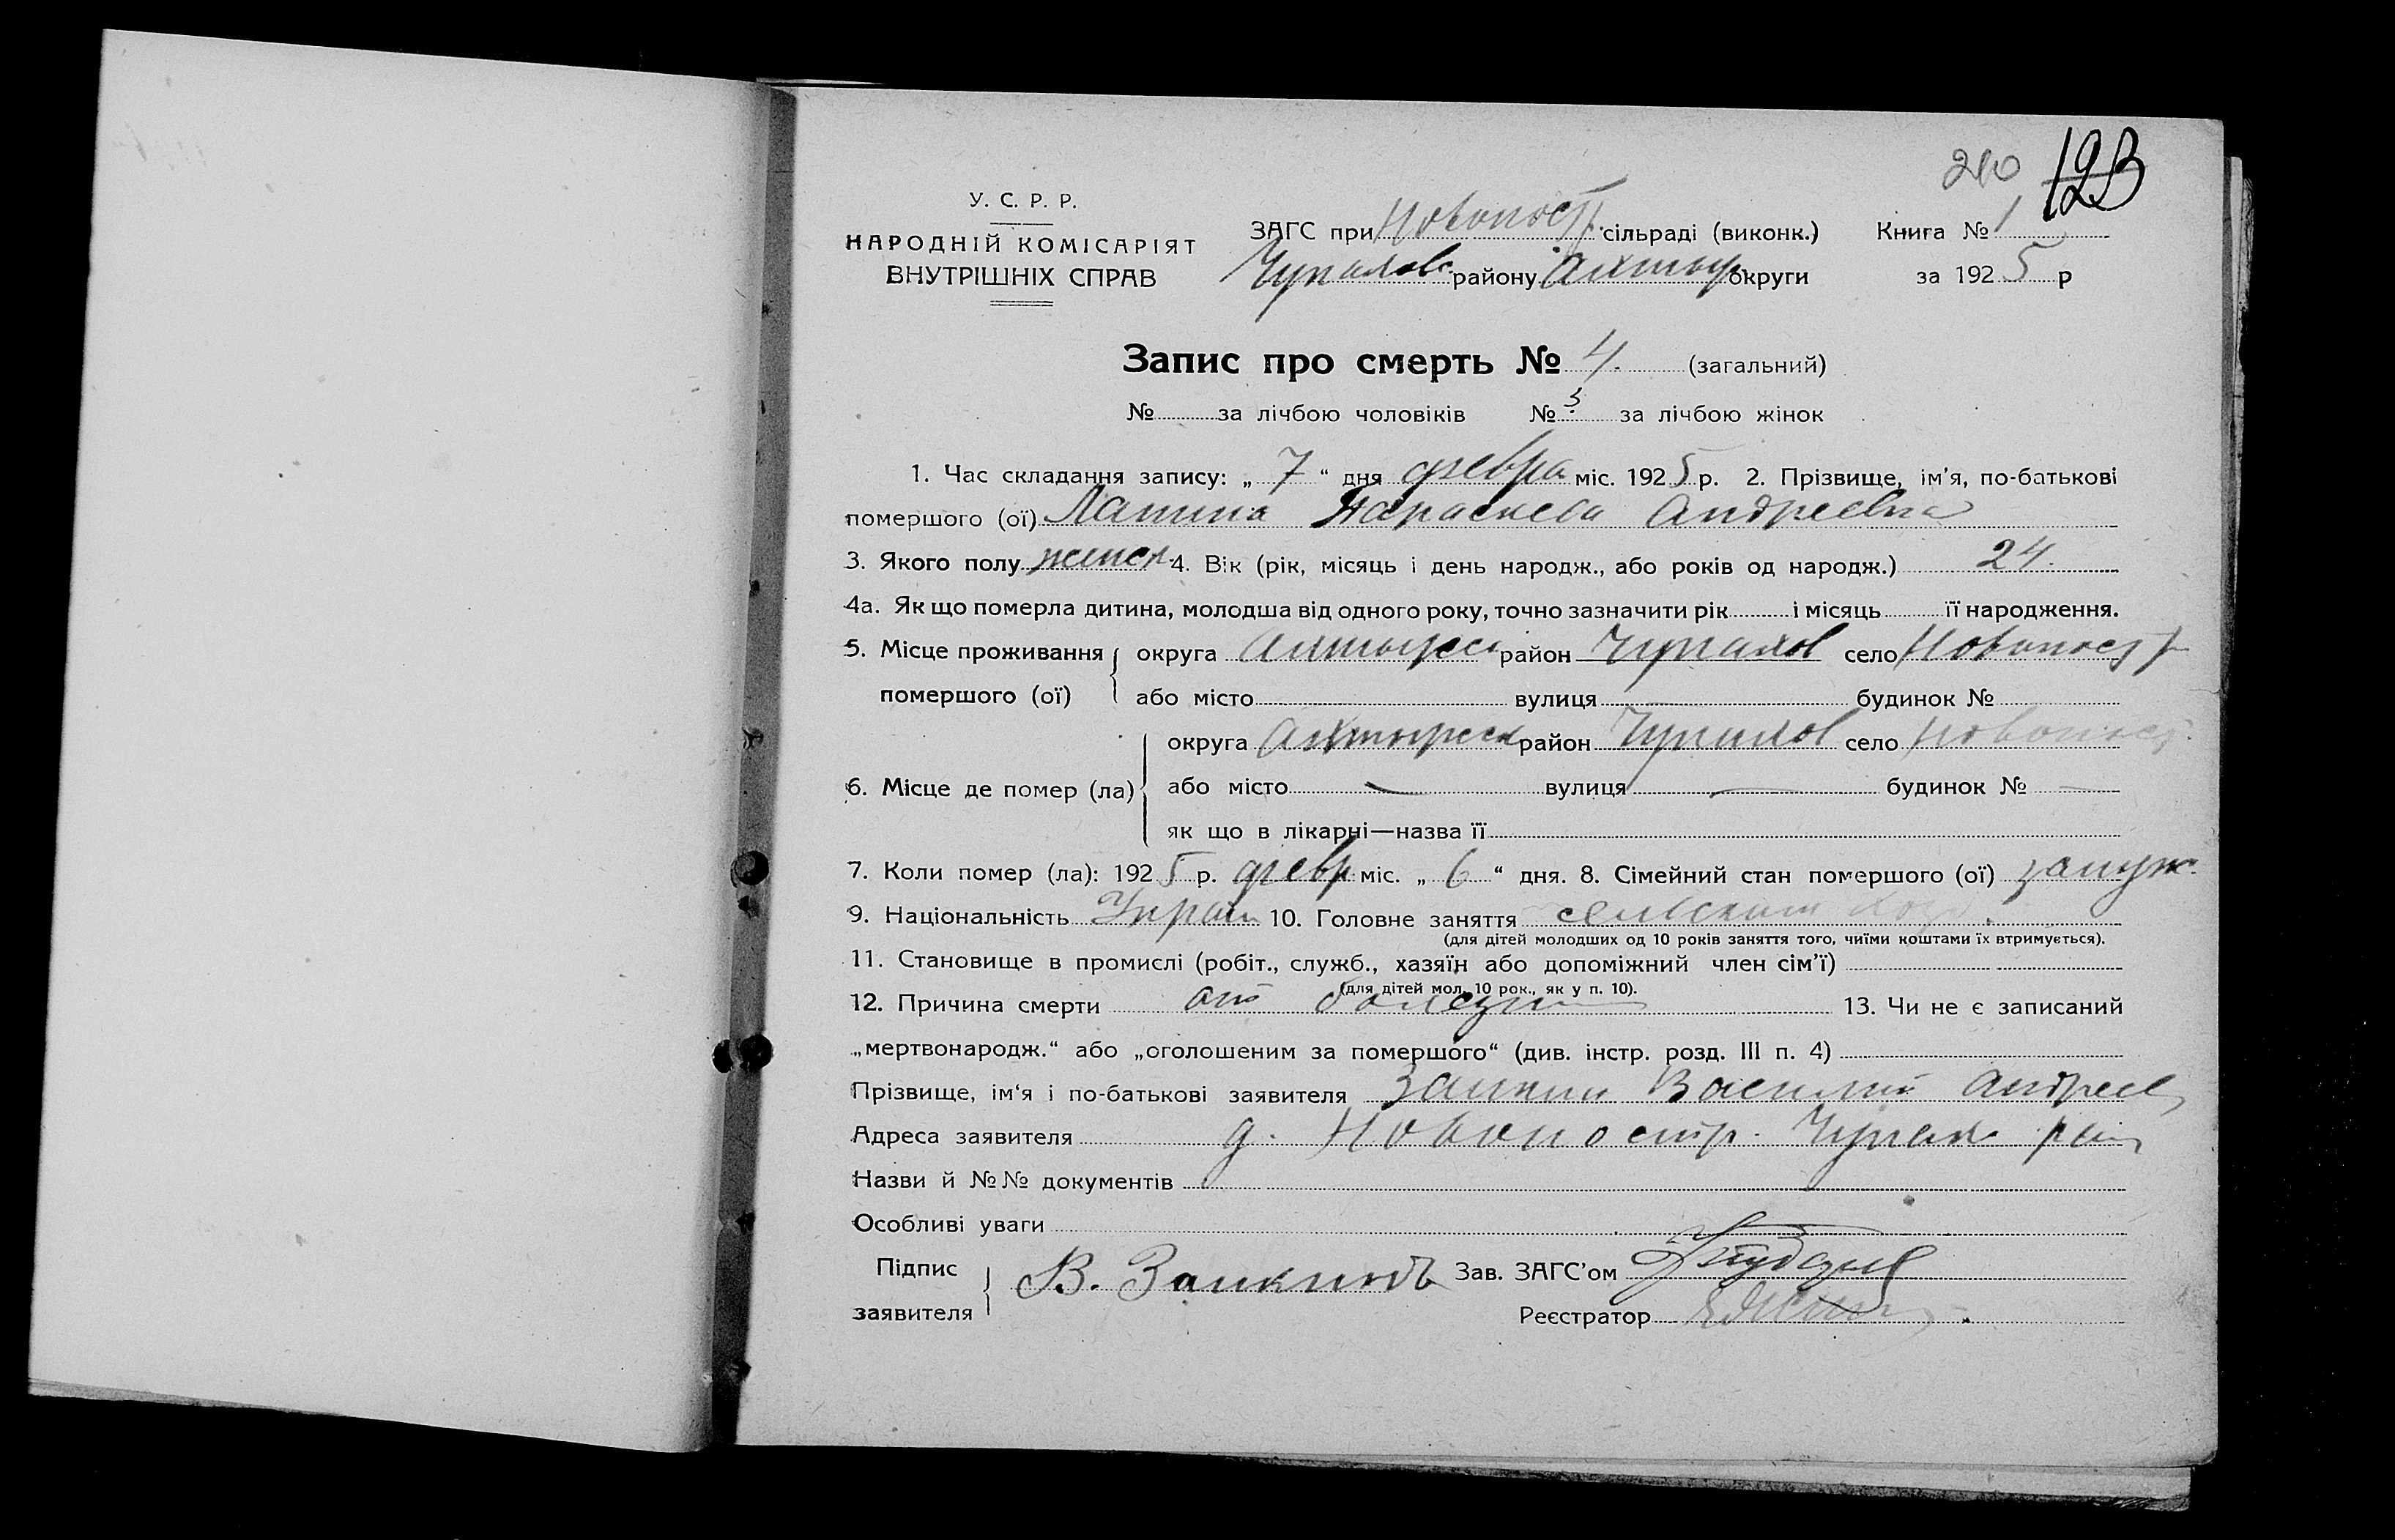 210 123
У. С. Р. Р.
НАРОДНІЙ КОМІСАРІЯТ
ВНУТРІШНІХ СПРАВ
ЗАГС при Новопостр. сільраді (виконк.) Книга № 1
Чупаховс району Ахтыр округи за 1925 р
Запис про смерть № 4. (загальний)
№ за лічбою чоловіків № 3 за лічбою жінок
1. Час складання запису: „ 7 “ дня февра міс. 1925 р. 2. Прізвище, ім’я, по-батькові
помершого (ої) Параскева Андреевна
3. Якого полу женск 4. Вік (рік, місяць і день народж., або років од народж.) 24.
4а. Як що померла дитина, молодша від одного року, точно зазначити рік і місяць її народження.
5. Місце проживання округа Ахтырск район Чупахов село Новопостр
помершого (ої) або місто вулиця будинок №
округа Ахтырск район Чупахов село Новопост
6. Місце де помер (ла) або місто — вулиця — будинок № —
як що в лікарні—назва її
7. Коли помер (ла): 1925 р. февр міс. „ 6 “ дня. 8. Сімейний стан помершого (ої) замуж.
9. Національність Украин 10. Головне заняття сельским хоз.
(для дітей молодших од 10 років заняття того, чиїми коштами їх втримується).
11. Становище в промислі (робіт., служб., хазяїн або допоміжний член сім’ї)
(для дітей мол. 10 рок., як у п. 10).
12. Причина смерти от болезни 13. Чи не є записаний
„мертвонародж.“ або „оголошеним за помершого“ (див. інстр. розд. III п. 4)
Прізвище, ім‘я і по-батькові заявителя Заикин Василий Андреев
Адреса заявителя д. Новопостр. Чупах рай
Назви й №№ документів
Особливі уваги
Підпис
заявителя В. Заикинъ Зав. ЗАГС’ом
Реєстратор